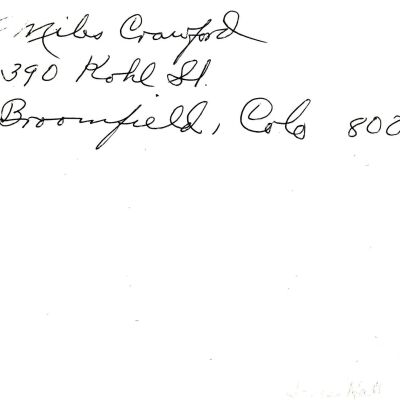 Miles Crawford
390 Kohl St.
Broomfield, Colo 802